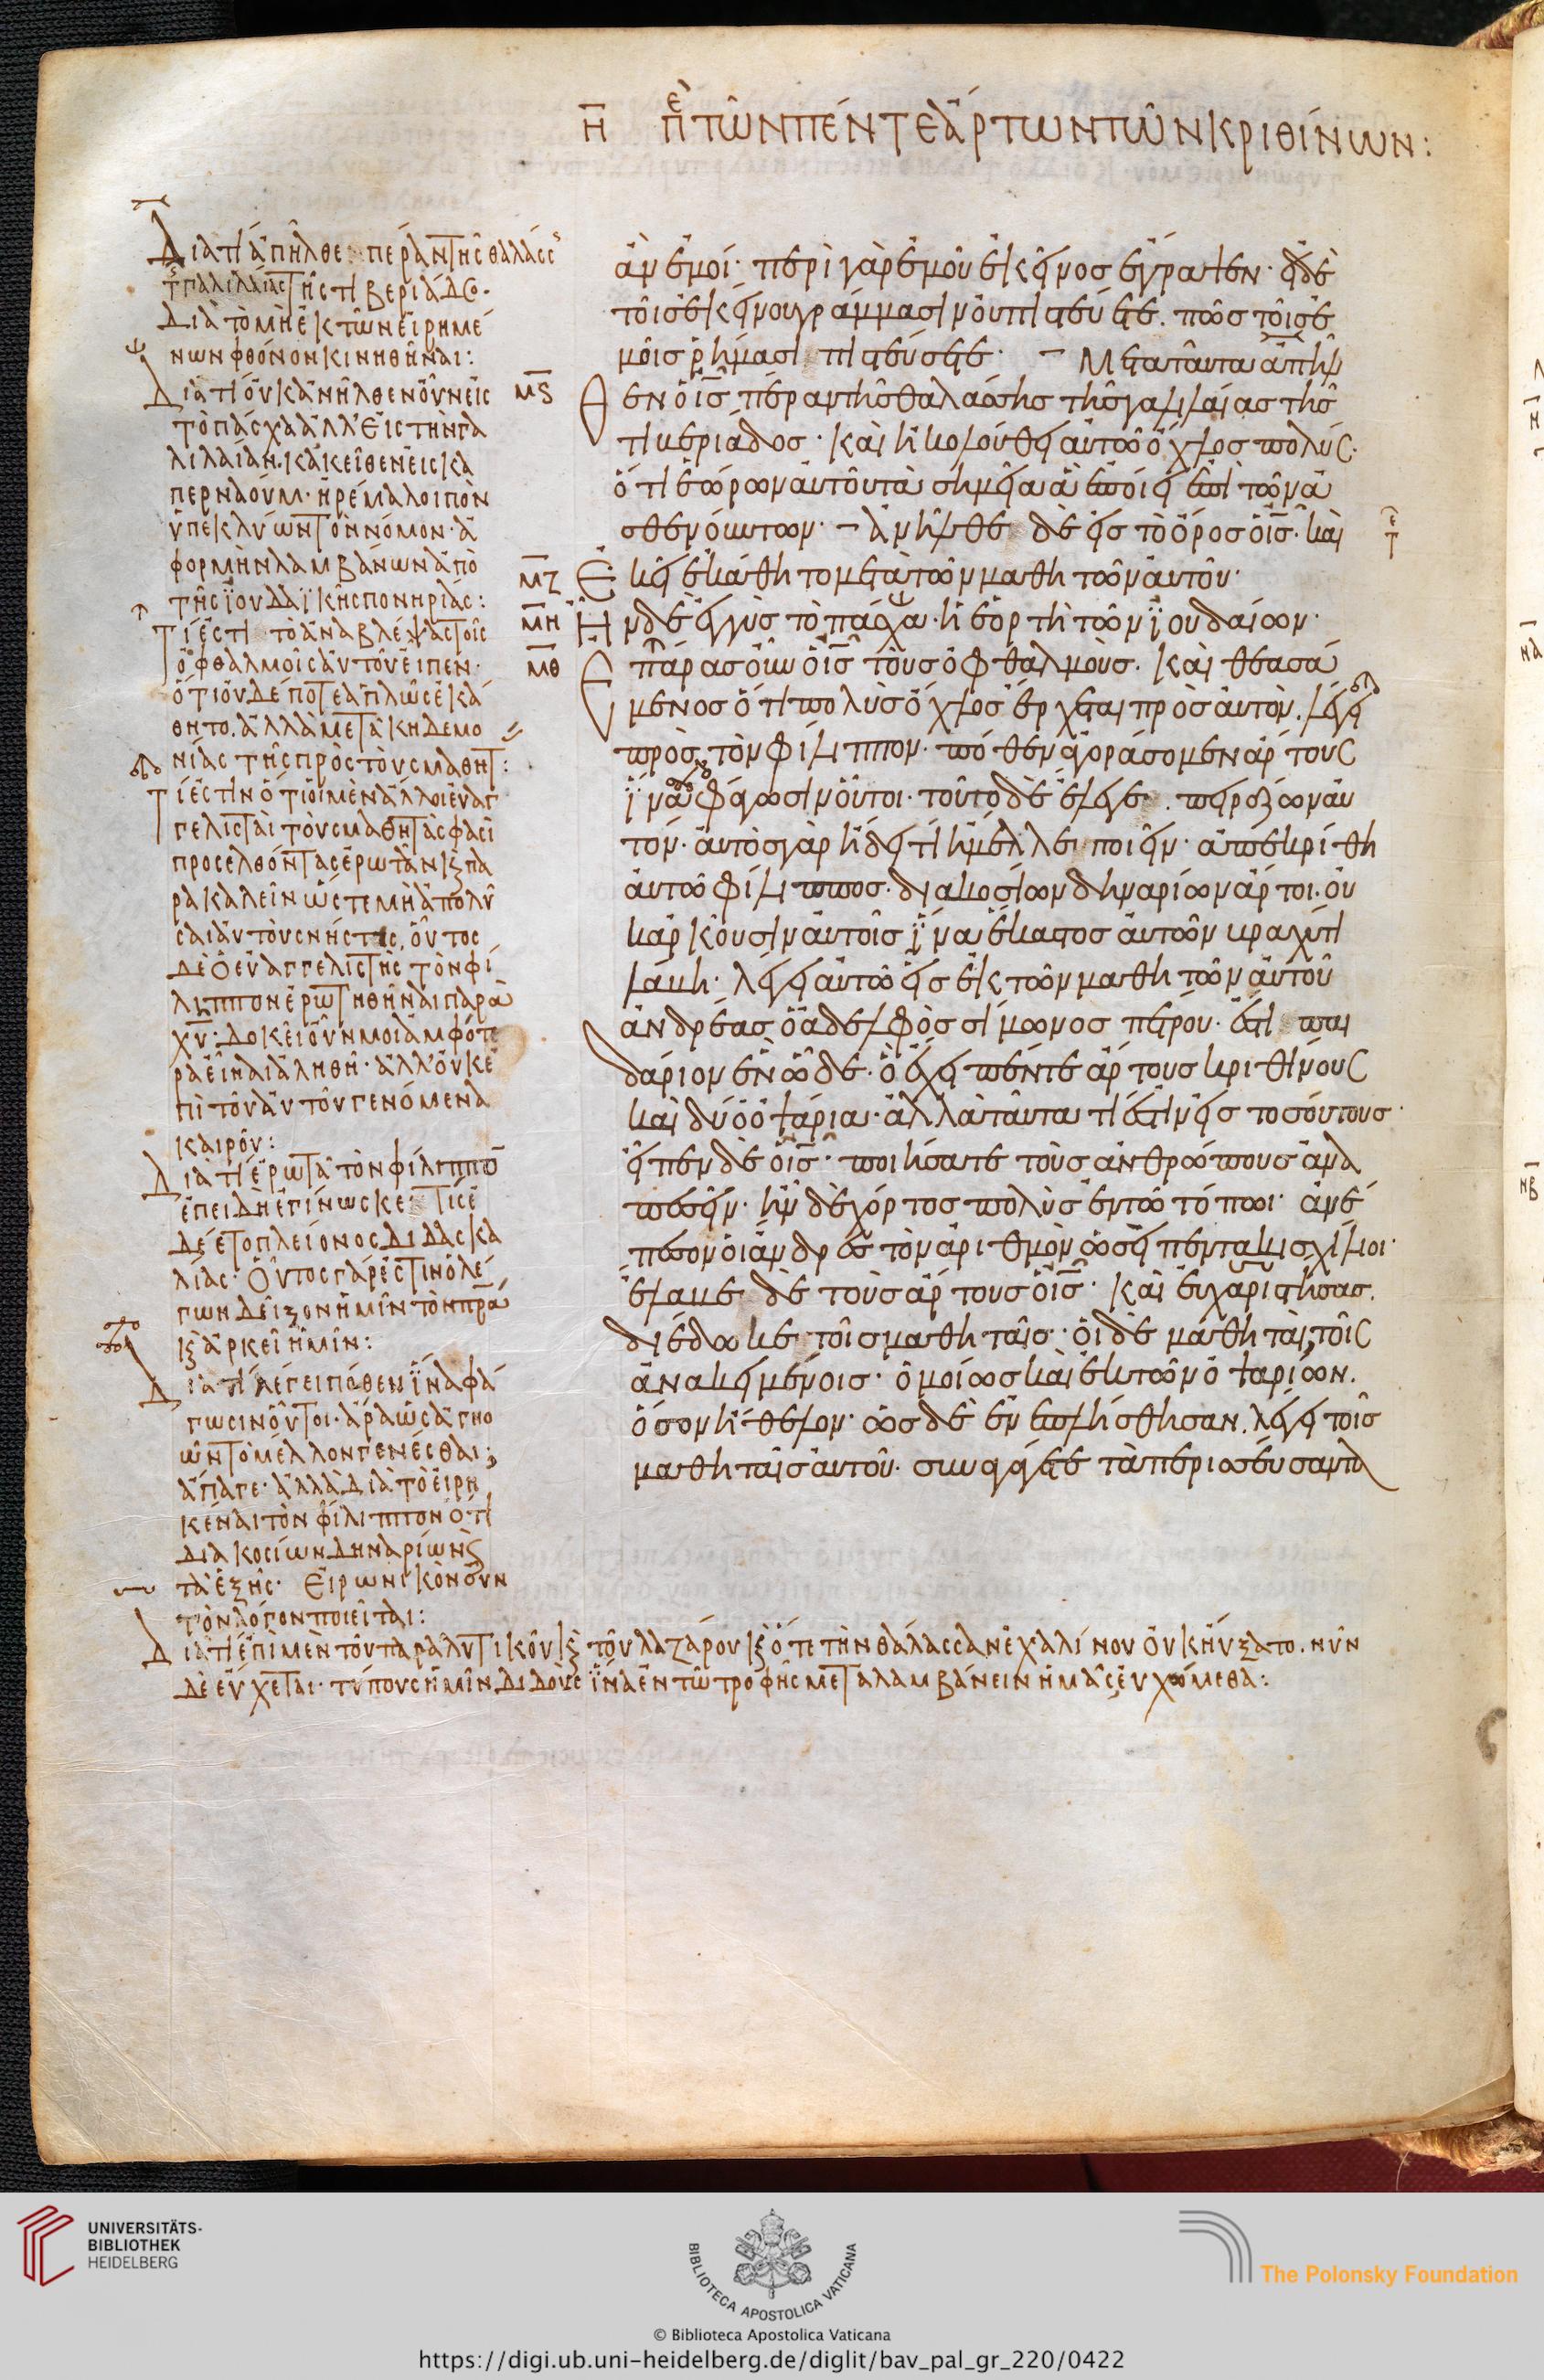 Η ΠΕ ΤΩΝ ΠΕΝΤΕ ΑΡΤΩΝ ΤΩΝ ΚΡΙΘΙΝΩΝ:
Διατί ἀπῆλθε πέραν τῆς θαλάσσ
τ Γαλιλαίας τῆς Τιβεριάδο·
Διὰ τὸ μὴ ἐκ τῶν εἰρημέ
νων φθόνον κινηθῆναι:
Διατί οὐκ ἀνῆλθεν οὖν εἰς
τὸ πάσχα ἀλλ' εἰς τὴν Γα
λιλαίαν. κἀκεῖθεν εἰς Κα
περναούμ· ἠρέμα λοιπὸν
ὑπεκλύων τὸν νόμον· ἀ
φορμὴν λαμβάνων ἀπὸ
τῆς ἰουδαϊκῆς πονηρίας:
Τί ἐστι τὸ ἀναβλέψας τοῖς
ὀφθαλμοῖς αὐτοῦ εἶπεν·
ὅτι οὐδέποτε ἁπλῶς ἐκά
θητο. ἀλλὰ μετὰ κηδεμο
νίας τῆς πρὸς τοὺς μαθητ:
Τί ἐστιν ὅτι οἱ μὲν ἄλλοι εὐαγ
γελισταὶ τοὺς μαθητάς φασι
προσελθόντας ἐρωτᾶν κ̀ πα
ρακαλεῖν ὥστε μὴ ἀπολῦ
σαι αὐτοὺς νήστις, οὗτος
δὲ ὁ εὐαγγελιστὴς τὸν Φί
λιππον ἐρωτηθῆναι παρὰ
χυ· δοκεῖ οὖν μοι ἀμφότε
ρα εἶναι ἀληθῆ· ἀλλ' οὐκ ἐ
πὶ τοῦ αὐτοῦ γενόμενα
καιροῦ:
Διατί ἐρωτᾶ τὸν Φίλιππο
ἐπειδὴ ἐγίνωσκε τίς ἐ
δέετο πλείονος διδασκα
λίας· οὗτος γάρ ἐστιν ὁ λέ
γων δεῖξον ἡμῖν τὸν πρα
κ̀ ἀρκεῖ ἡμῖν:
Διατί λέγει πόθεν ἵνα φά
γωσιν οὗτοι· ἆρα ὡς ἀγνο
ῶν τὸ μέλλον γενέσθαι;
ἄπαγε· ἀλλὰ διὰ τὸ εἰρη
κέναι τὸν Φίλιππον ὅτι
διακοσίων δηναρίων κ̀
τὰ ἑξῆς· εἰρωνικὸν οὖν
τὸν λόγον ποιεῖται:
Διατί ἐπὶ μὲν τοῦ παραλυτικοῦ κ̀ τοῦ Λαζάρου κ̀ ὅτε τὴν θάλασσαν ἐχαλίνου οὐκ ηὔξατο. νῦν
δὲ εὔχεται· τύπους ἡμῖν διδοὺς ἵνα ἐν τῶ τροφῆς μεταλαμβάνειν ἡμᾶς, εὐχώμεθα:
ἂν ἐμοί· περὶ γὰρ ἐμοῦ ἐκεῖνος ἔγραψεν· εἰ δὲ
τοῖς ἐκείνου γράμμασιν οὐ πιστεύετε. πῶς τοῖς ἐ
μοῖς ῥήμασι πιστεύσετε· Μετὰ ταῦτα ἀπῆλ
μς θεν ὁ ις πέραν τῆς θαλάσσης τῆς γαλιλαίας τῆς
τιβεριάδος· καὶ ἠκολούθει αὐτῶ ὄχλος πολύς·
ὅτι ἑώρων αὐτοῦ τὰ σημεῖα ἃ ἐποίει ἐπὶ τῶν ἀ
σθενούντων· ἀνῆλθε δὲ εἰς τὸ ὄρος ὁ ις· καὶ
μζ ἐκεῖ ἐκάθητο μετὰ τῶν μαθητῶν αὐτοῦ·
μη Ην δὲ ἐγγὺς τὸ πάσχα· ἡ ἑορτὴ τῶν ἰουδαίων·
μθ Επάρας οὖν ὁ ις τοὺς ὀφθαλμούς. καὶ θεασά
μενος ὅτι πολὺς ὄχλος ἔρχεται πρὸς αὐτόν. λέγει
πρὸς τὸν φίλιππον· πόθεν ἀγοράσομεν ἄρτους
ἵνα φάγωσιν οὗτοι· τοῦτο δὲ ἔλεγε. πειράζων αὐ
τόν· αὐτὸς γὰρ ἤδει τί ἤμελλε ποιεῖν· ἀπεκρίθη
αὐτῶ φίλιππος· διακοσίων δηναρίων ἄρτοι. οὐ
κ ἀρκοῦσιν αὐτοῖς ἵνα ἕκαστος αὐτῶν βραχύ τι
λάβη· λέγει αὐτῶ εἷς ἐκ τῶν μαθητῶν αὐτοῦ
ἀνδρέας ὁ ἀδελφὸς σίμωνος πέτρου· ἔστι παι
δάριον ἓν ὧδε· ὃ ἔχει πέντε ἄρτους κριθίνους
καὶ δύο ὀψάρια· ἀλλὰ ταῦτα τί ἐστιν εἰς τοσούτους·
εἶπεν δὲ ὁ ις· ποιήσατε τοὺς ἀνθρώπους ἀνα
πεσεῖν· ἦν δὲ χόρτος πολὺς ἐν τῶ τόπωι· ἀνέ
πεσον οἱ ἄνδρες τὸν ἀριθμὸν ὡσεὶ πεντακισχίλιοι·
ἔλαβε δὲ τοὺς ἄρτους ὁ ις· καὶ εὐχαριστήσας.
διέδωκε τοῖς μαθηταῖς· οἱ δὲ μαθηταὶ, τοῖς
ἀνακειμένοις· ὁμοίως καὶ ἐκ τῶν ὀψαρίων.
ὅσον ἤθελον· ὡς δὲ ἐνεπλήσθησαν. λέγει τοῖς
μαθηταῖς αὐτοῦ· συναγάγετε τὰ περισσεύσαντα
UNIVERSITÄTS-
BIBLIOTHEK
HEIDELBERG
BIBLIOTECA APOSTOLICA VATICANA
The Polonsky Foundation
© Biblioteca Apostolica Vaticana
https://digi.ub.uni-heidelberg.de/diglit/bav_pal_gr_220/0422